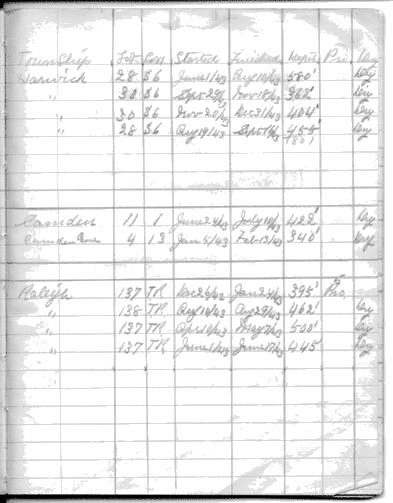 Township Lot Con Started Finished Depth Pro Dry
Warwick 28 S6 June 1/43 Aug 10/43 580'
" 30 S6 Sept 29/43 Nov 18/43 362' Dry
" 30 S6 Nov 20/43 Dec 31/43 404' Dry
" 28 S6 Aug 19/43 Sept 43 455' Dry
Camden 11 1 June 24/43 July 10/43 422' Dry
Camden Gore 4 13 Jan 5/43 Feb 13/43 340' Dry
Raleigh 137 TR Dec 26/42 Jan 24/43 395' Pro
" 138 TR Aug 10/43 Aug 29/43 462' Dry
" 137 TR Apr 10/43 May 7/43 500' Dry
" 137 TR June 1/43 June 17/43 445' Dry